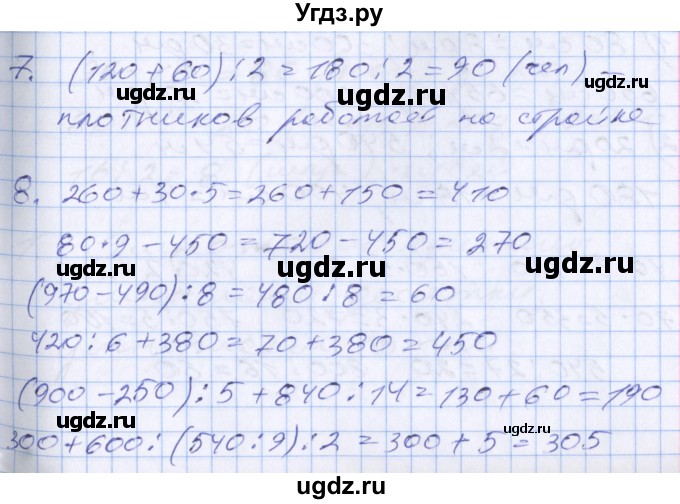 Угдз.ру
7. (120 + 60) : 2 = 180 : 2 = 90 (чел) –
плотников работает на стройке
8. 260 + 30 · 5 = 260 + 150 = 410
80 · 9 – 450 = 720 – 450 = 270
(970 – 490) : 8 = 480 : 8 = 60
420 : 6 + 380 = 70 + 380 = 450
(900 – 250) : 5 + 840 : 14 = 130 + 60 = 190
300 + 600 : (540 : 9) : 2 = 300 + 5 = 305
ugdz.ru ugdz.ru ugdz.ru
ugdz.ru ugdz.ru ugdz.ru
ugdz.ru ugdz.ru ugdz.ru
ugdz.ru ugdz.ru ugdz.ru
ugdz.ru ugdz.ru ugdz.ru
Угдз.ру